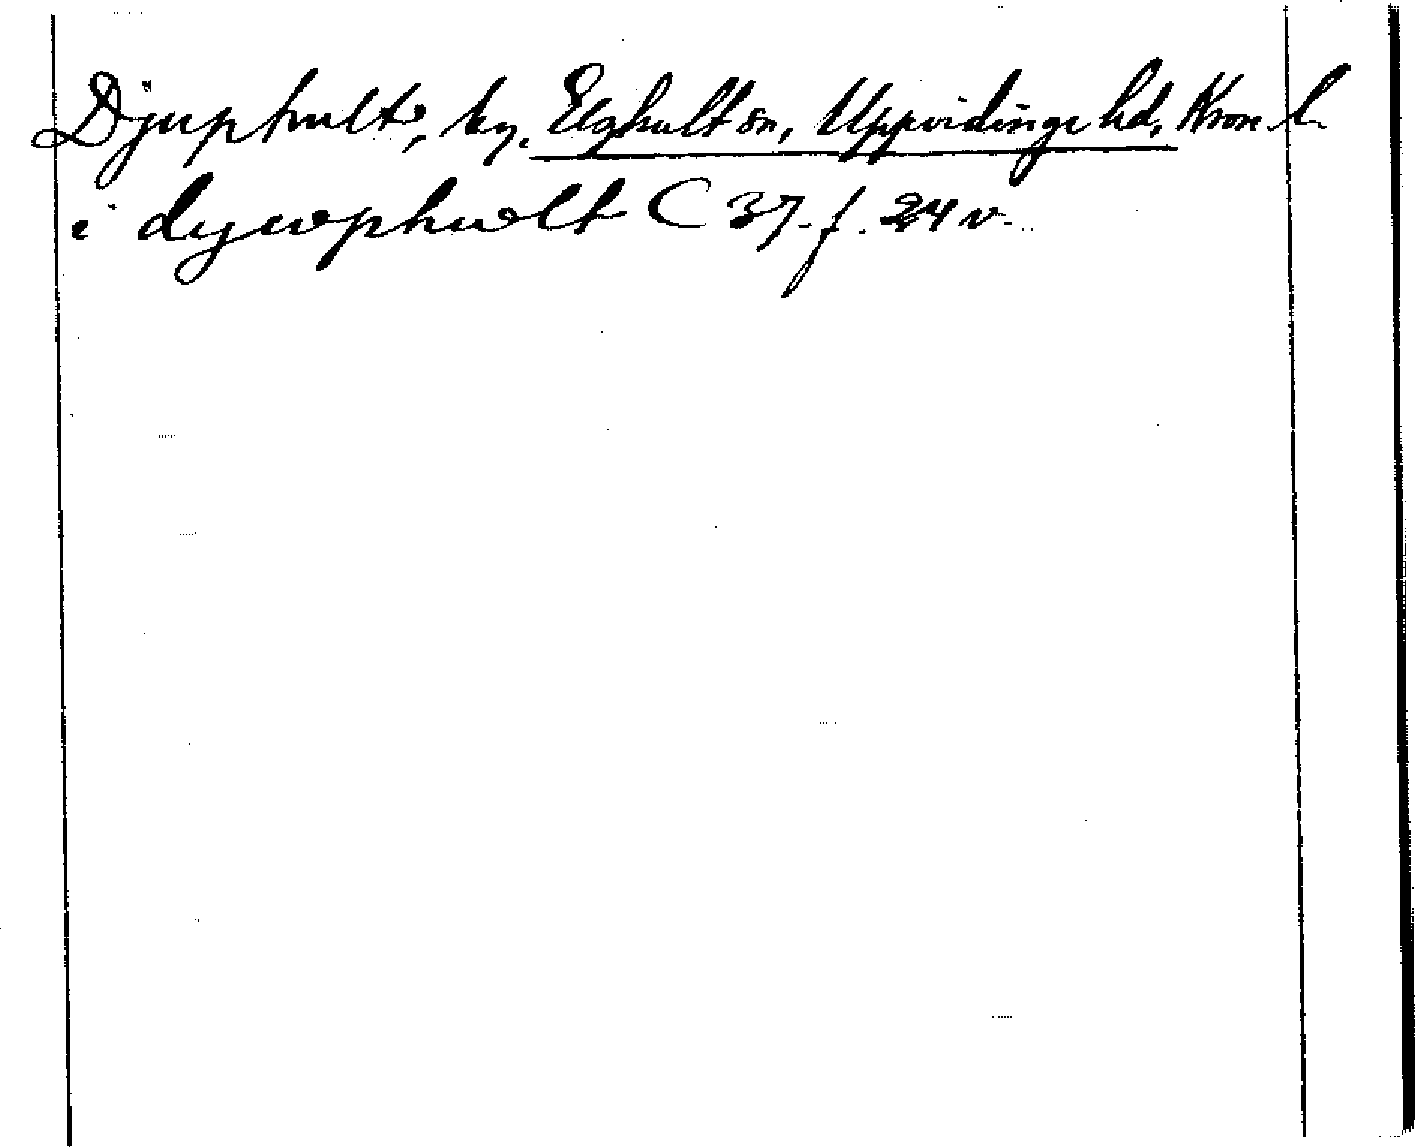 Djuphult, by, Elghult sn, Uppvidinge hd, Kron. l.
i dywphwlt C 37 f. 24 v.